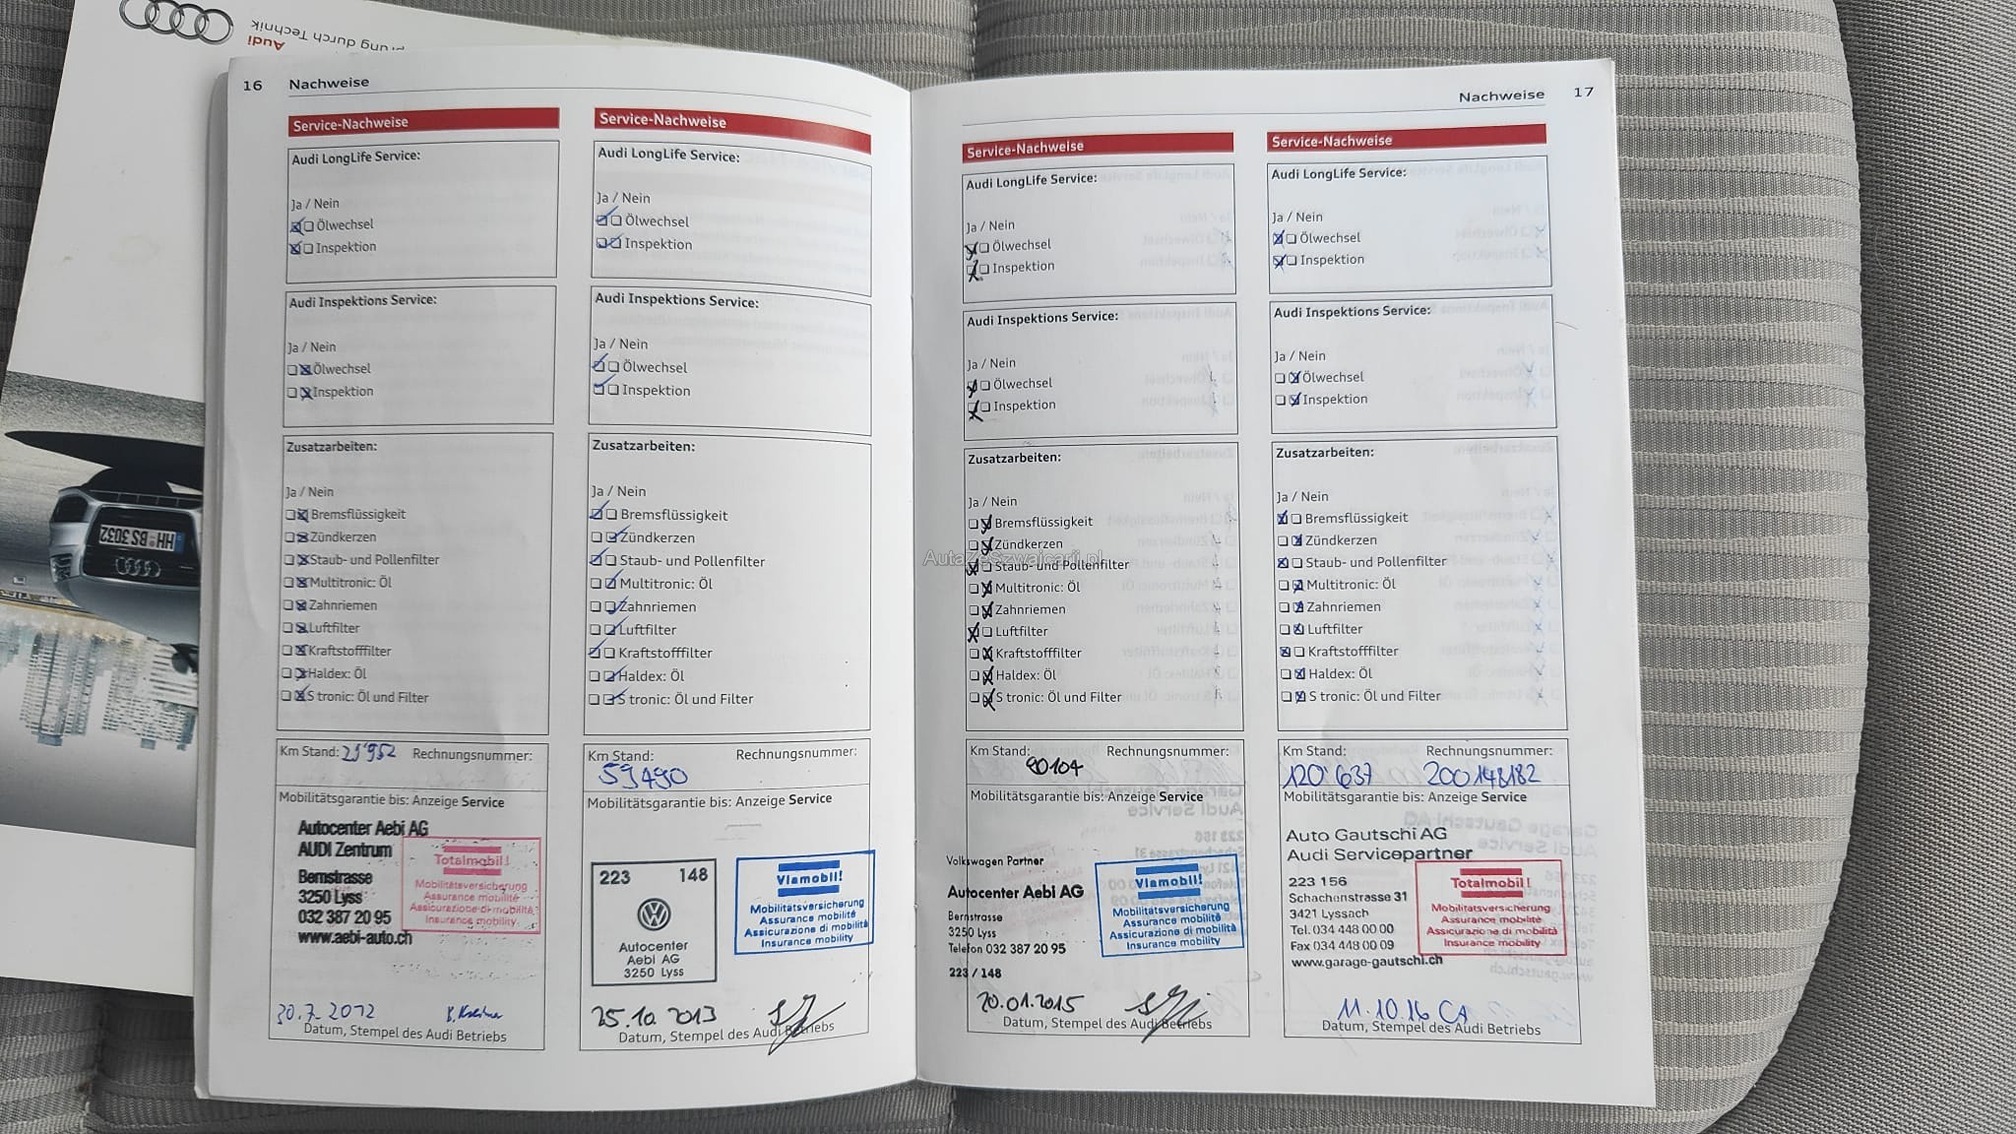 Audi
Vorsprung durch Technik
HH BS 3032
16 Nachweise
Service-Nachweise
Audi LongLife Service:
Ja / Nein
Ölwechsel
Inspektion
Audi Inspektions Service:
Ja / Nein
Ölwechsel
Inspektion
Zusatzarbeiten:
Ja / Nein
Bremsflüssigkeit
Zündkerzen
Staub- und Pollenfilter
Multitronic: Öl
Zahnriemen
Luftfilter
Kraftstofffilter
Haldex: Öl
S tronic: Öl und Filter
Km Stand: 29'952 Rechnungsnummer:
Mobilitätsgarantie bis: Anzeige Service
Autocenter Aebi AG
AUDI Zentrum
Bernstrasse
3250 Lyss
032 387 20 95
www.aebi-auto.ch
Totalmobil!
Mobilitätsversicherung
Assurance mobilité
Assicurazione di mobilità
Insurance mobility
30.7.2012
Datum, Stempel des Audi Betriebs
Service-Nachweise
Audi LongLife Service:
Ja / Nein
Ölwechsel
Inspektion
Audi Inspektions Service:
Ja / Nein
Ölwechsel
Inspektion
Zusatzarbeiten:
Ja / Nein
Bremsflüssigkeit
Zündkerzen
Staub- und Pollenfilter
Multitronic: Öl
Zahnriemen
Luftfilter
Kraftstofffilter
Haldex: Öl
S tronic: Öl und Filter
Km Stand: Rechnungsnummer:
59490
Mobilitätsgarantie bis: Anzeige Service
223 148
Autocenter
Aebi AG
3250 Lyss
Vlamobil!
Mobilitätsversicherung
Assurance mobilité
Assicurazione di mobilità
Insurance mobility
25.10.2013
Datum, Stempel des Audi Betriebs
Nachweise 17
Service-Nachweise
Audi LongLife Service:
Ja / Nein
Ölwechsel
Inspektion
Audi Inspektions Service:
Ja / Nein
Ölwechsel
Inspektion
Zusatzarbeiten:
Ja / Nein
Bremsflüssigkeit
Zündkerzen
Staub- und Pollenfilter
Multitronic: Öl
Zahnriemen
Luftfilter
Kraftstofffilter
Haldex: Öl
S tronic: Öl und Filter
Km Stand: Rechnungsnummer:
90104
Mobilitätsgarantie bis: Anzeige Service
Volkswagen Partner
Autocenter Aebi AG
Bernstrasse
3250 Lyss
Telefon 032 387 20 95
223 / 148
Vlamobil!
Mobilitätsversicherung
Assurance mobilité
Assicurazione di mobilità
Insurance mobility
20.01.2015
Datum, Stempel des Audi Betriebs
Service-Nachweise
Audi LongLife Service:
Ja / Nein
Ölwechsel
Inspektion
Audi Inspektions Service:
Ja / Nein
Ölwechsel
Inspektion
Zusatzarbeiten:
Ja / Nein
Bremsflüssigkeit
Zündkerzen
Staub- und Pollenfilter
Multitronic: Öl
Zahnriemen
Luftfilter
Kraftstofffilter
Haldex: Öl
S tronic: Öl und Filter
Km Stand: Rechnungsnummer:
120'637 200148182
Mobilitätsgarantie bis: Anzeige Service
Auto Gautschi AG
Audi Servicepartner
223 156
Schachenstrasse 31
3421 Lyssach
Tel. 034 448 00 00
Fax 034 448 00 09
www.garage-gautschi.ch
Totalmobil!
Mobilitätsversicherung
Assurance mobilité
Assicurazione di mobilità
Insurance mobility
11.10.16 CA
Datum, Stempel des Audi Betriebs
AutaZeSzwajcarii.pl